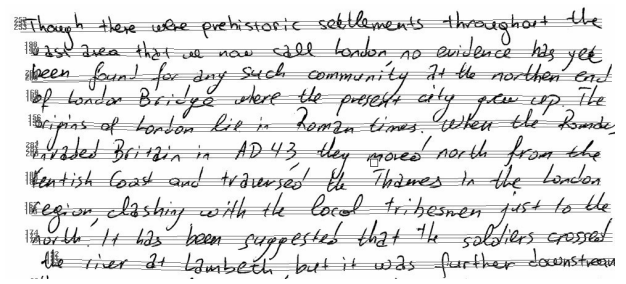 Though there were prehistoric settlements throughout the
vast area that we now call London, no evidence has yet
been found for any such community at the northen end
of London Bridge where the present city grew up. The
origins of London lie in Roman times. When the Romans
invaded Britain in AD 43, they moved north from the
Kentish Coast and traversed the Thames in the London
region, clashing with the local tribesmen just to the
north. It has been suggested that the soldiers crossed
the river at Lambeth, but it was further downstream